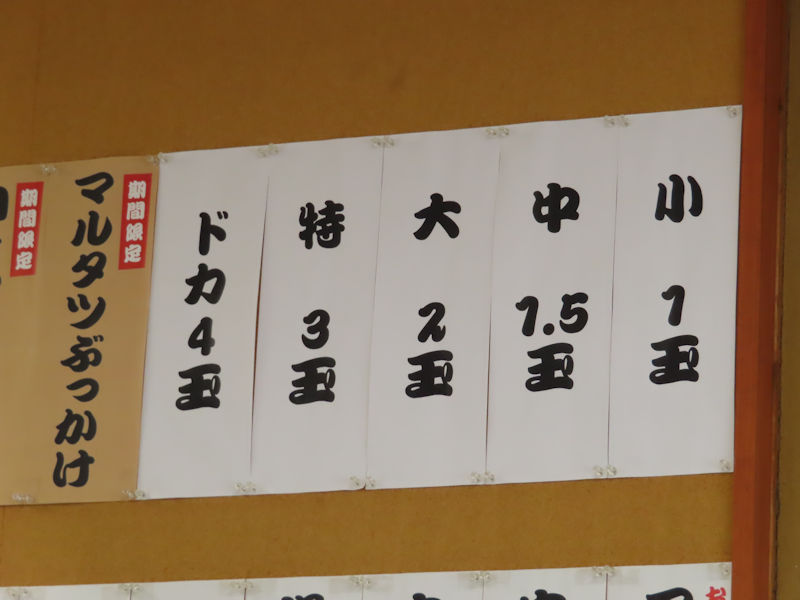 小 1玉
中 1.5玉
大 2玉
特 3玉
ドカ4玉
期間限定
マルタツぶっかけ
期間限定